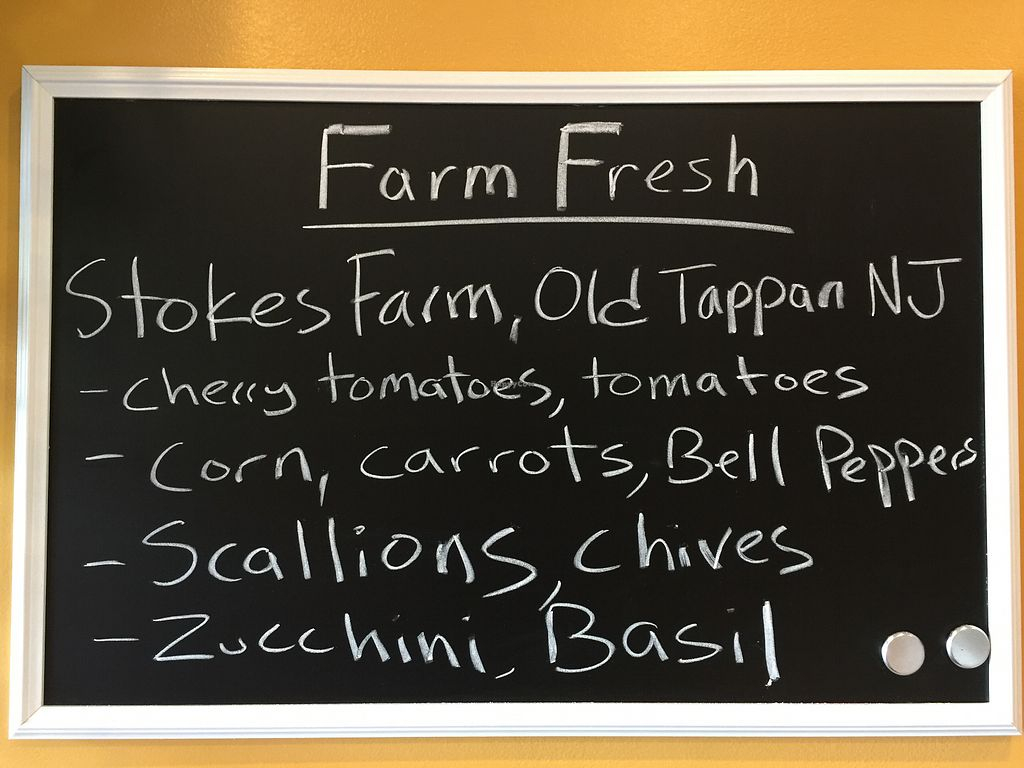 Farm Fresh
Stokes Farm, Old Tappan NJ
- cherry tomatoes, tomatoes
- Corn, carrots, Bell Peppers
- Scallions, chives
- Zucchini, Basil